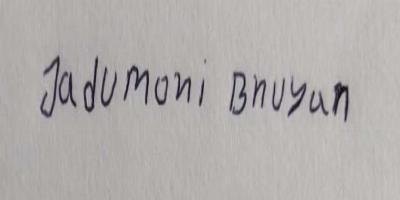 Jadumoni Bhuyan